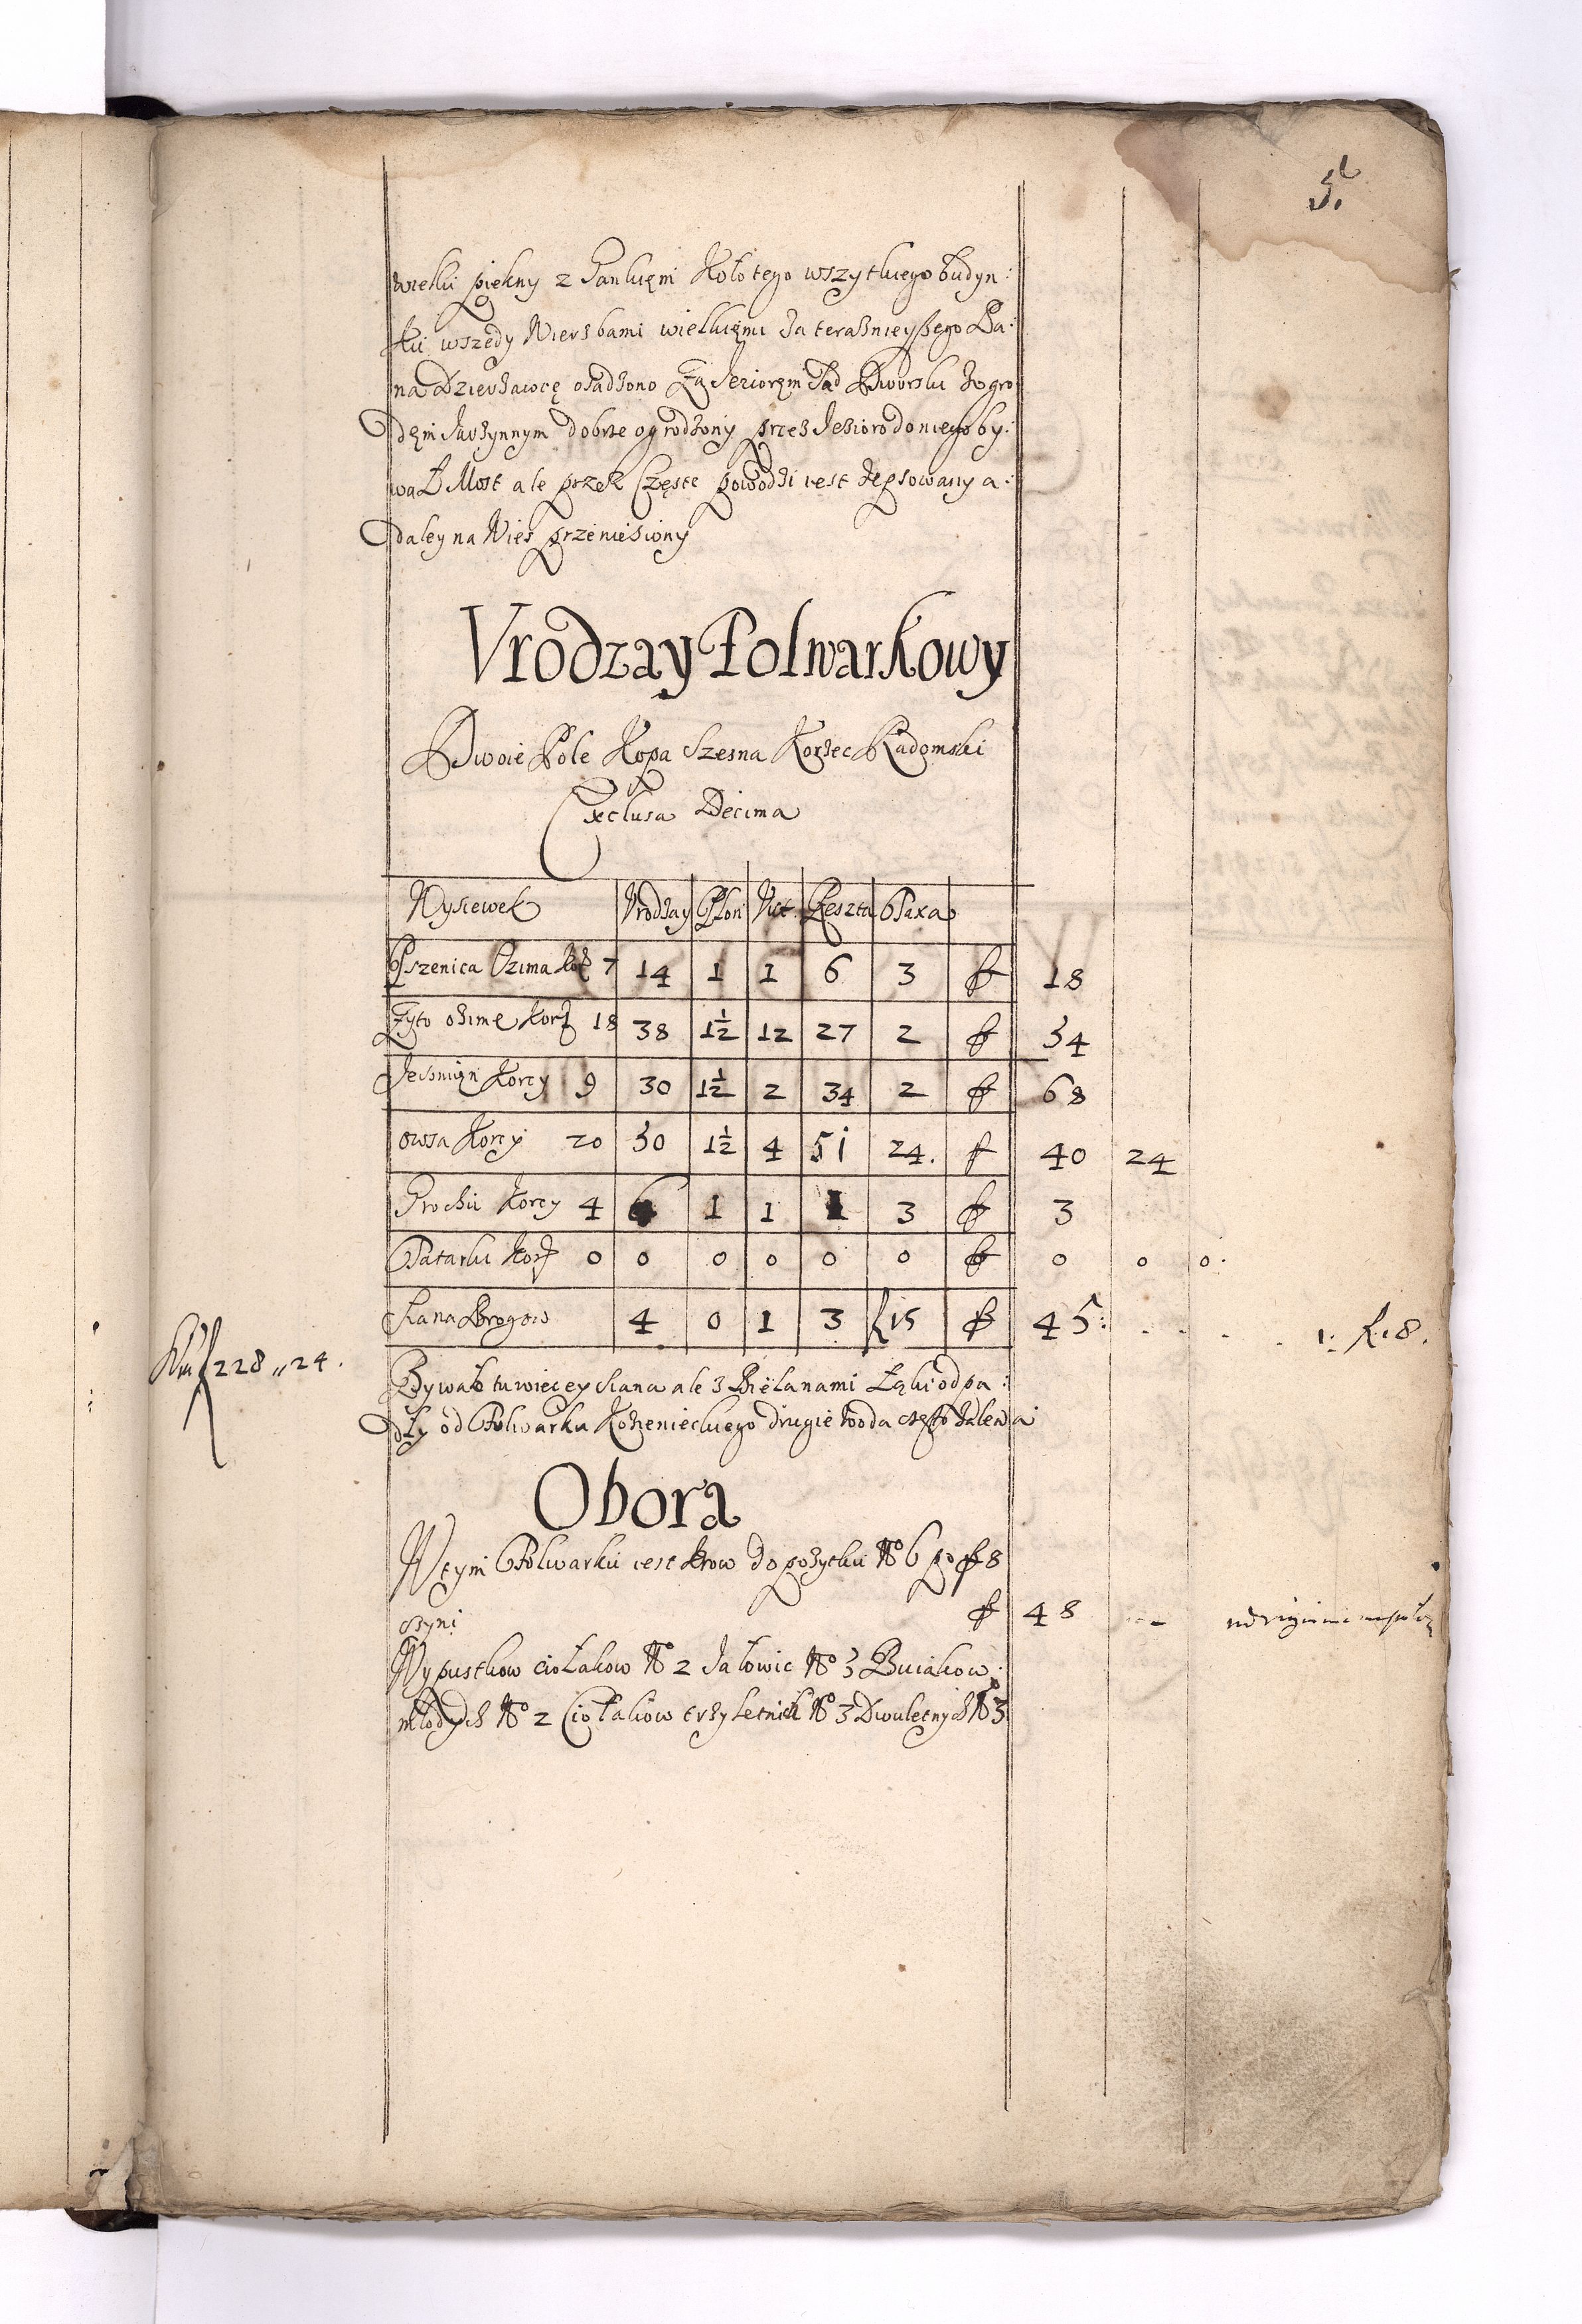 51
wielki piękny z Gankięm Koło tego wszytkiego budyn:
ku wszędy Wierzbami wielkięmi za teraznieyszego Pa:
na Dzierżawcę osadzono Za Jeziorem Sad Dworski z ogro
dęm Jarzynnym dobrze ogrodzony przez Jezioro do niego by:
wał Most ale przez Częste powodzi iest zepsowany a:
daley na Wieś przeniesiony
Vrodzay Folwarkowy
Dwoie Pole Kopa Szesna Korzec Radomski
Exclusa Decima
Wysiewek Vrodzay Plon Reszta Taxa
Pszenica Ozima Korz 7 14 1 1 6 3 f 18
Zyto ozime Korz 18 38 1½ 12 27 2 f 54
Jęczmięn Korcy 9 30 1½ 2 34 2 f 68
owsa Korcy 20 50 1½ 4 51 24. f 40 24
Grochu Korcy 4 6 1 1 1 3 f 3
Tatarki Korz 0 0 0 0 0 0 f 0 0 0.
Siana Brogow 4 0 1 3 f 15 f 45:
f 228 „ 24.
Bywało tu wiecey siana ale z Bielanami Łąki odpa:
dły od Folwarku Kozienieckiego drugie woda często zalewa
Obora
W tym Folwarku iest krow do pożytku No 6 po f 8
czyni f 48
Wypustkow ciołakow No 2 Jałowic No 3 Buiakow
młodych No 2 Ciołakow trzyletnich No 3 Dwuletnych No 3